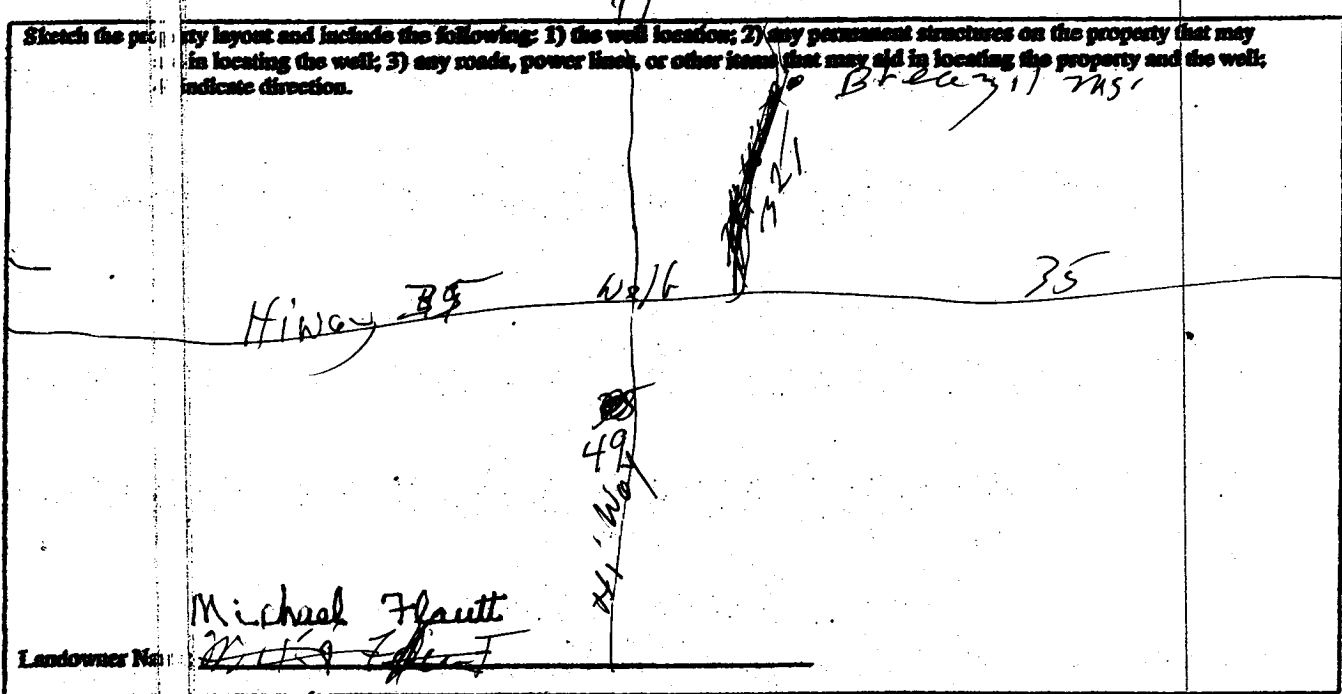 Sketch the pro ty layout and include the following: 1) the well location; 2) any permanent structures on the property that may
in locating the well; 3) any roads, power lines, or other items that may aid in locating the property and the well;
indicate direction.
21
35
Hiway 35
49
Hi Way
Michael Flautt
Landowner Na